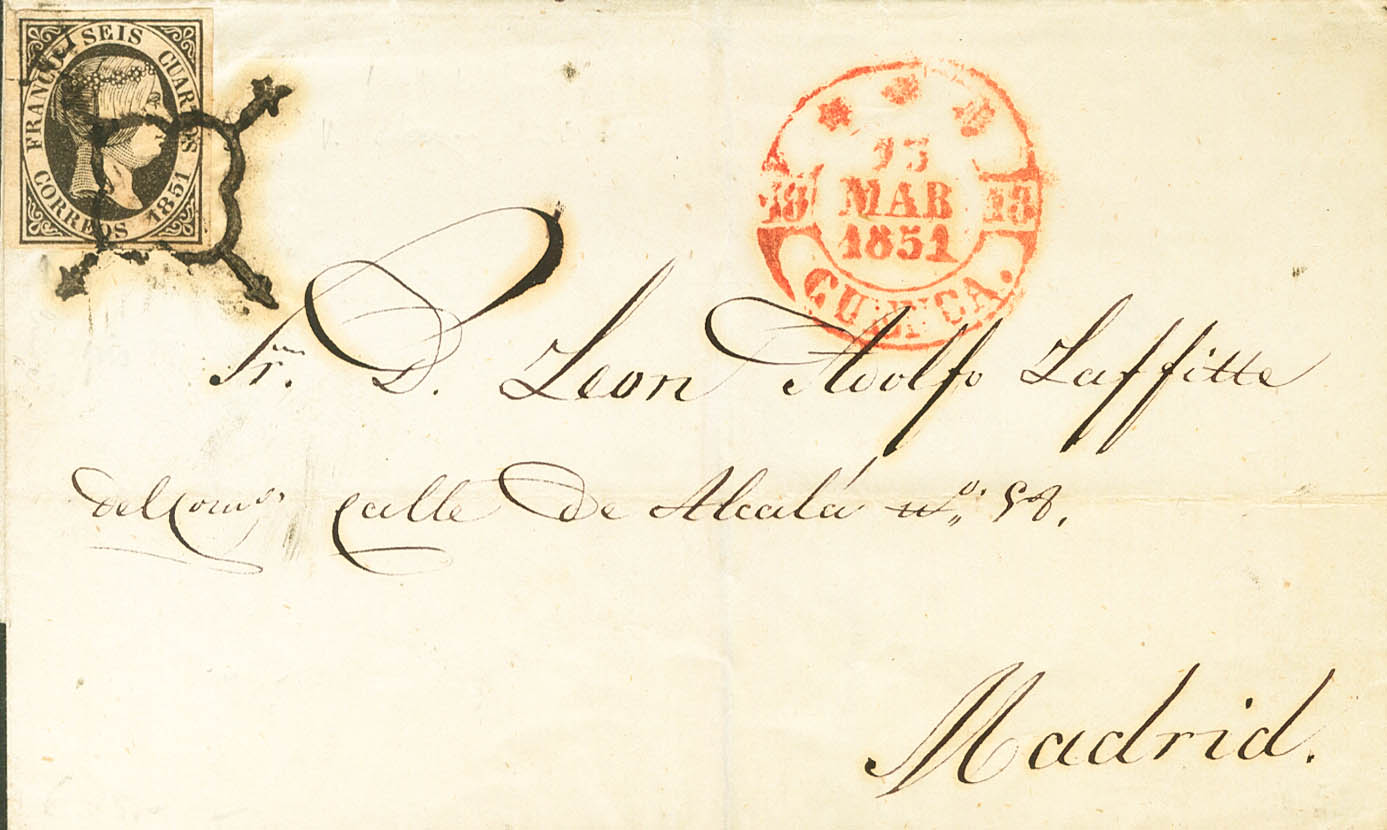 FRANCO SEIS CUARTOS
CORREOS 1851
13
MAR
1851
18 18
CUENCA.
Sr. D. Leon Adolfo Laffitte
del Com.o calle de Alcalá n.o 58.
Madrid.